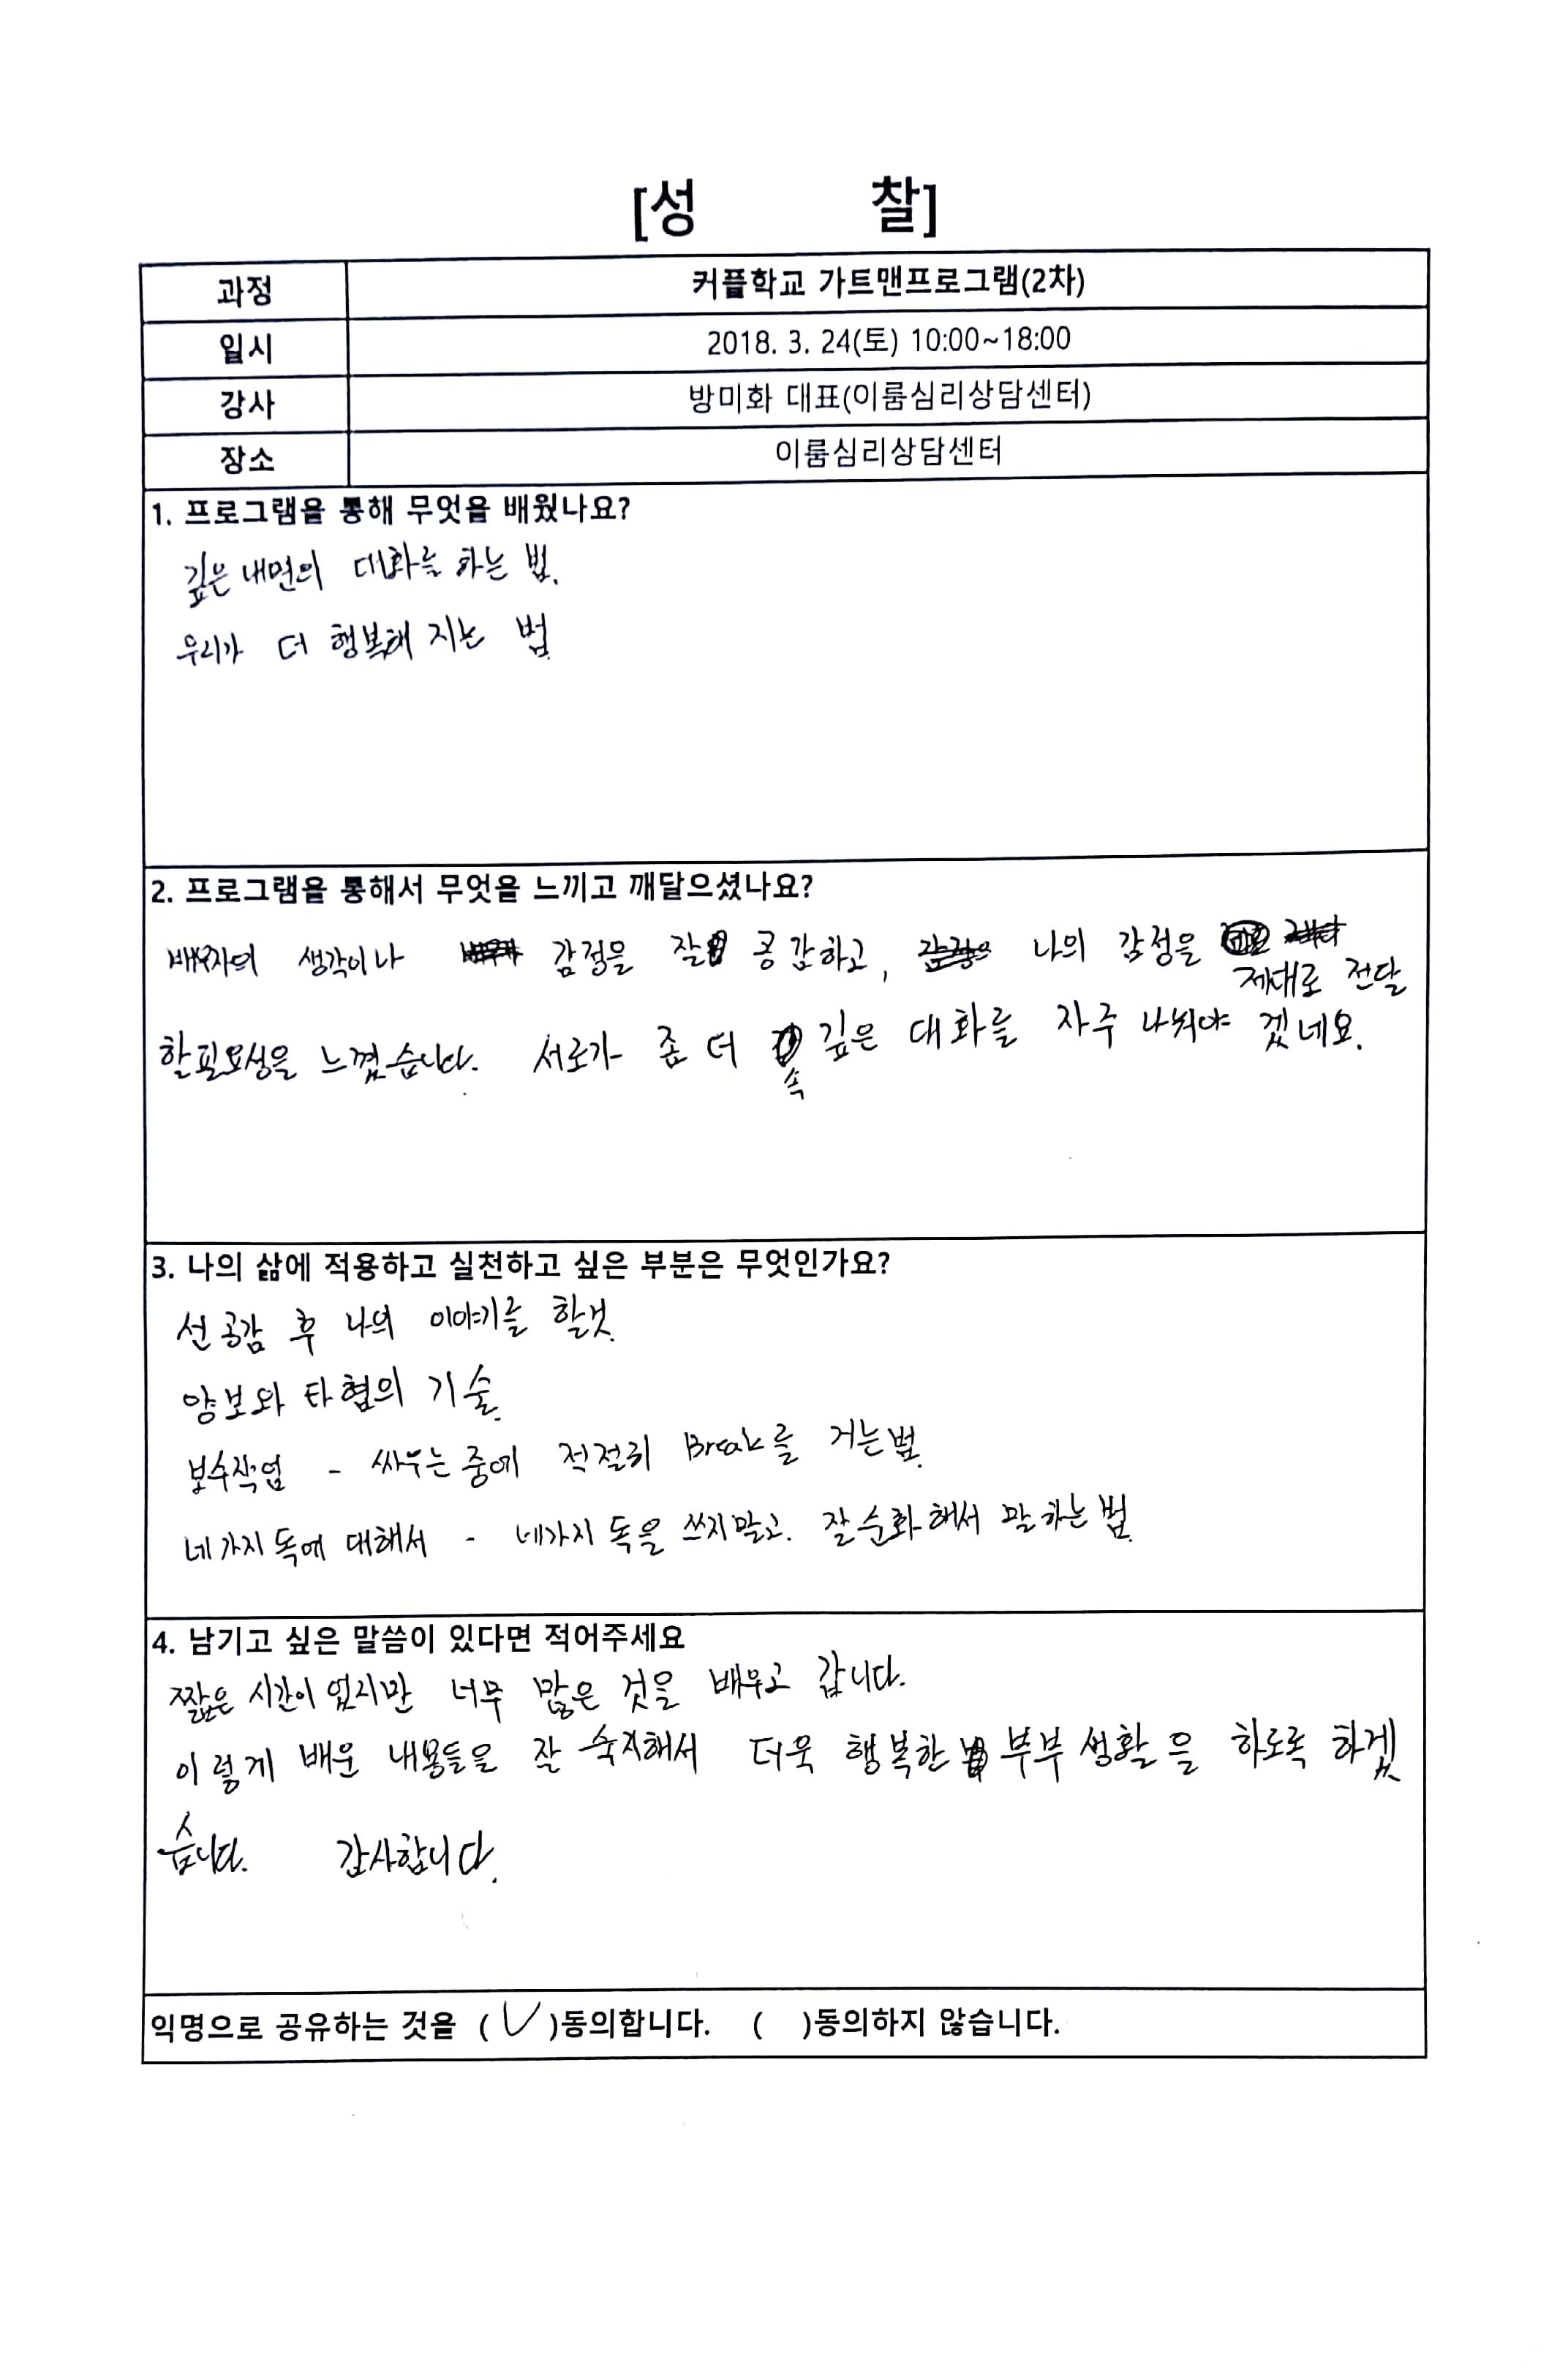 [성 찰]
과정 커플학교 가트맨프로그램(2차)
일시 2018. 3. 24(토) 10:00~18:00
강사 방미화 대표(이룸심리상담센터)
장소 이룸심리상담센터
1. 프로그램을 통해 무엇을 배웠나요?
깊은 내면의 대화를 하는 법.
우리가 더 행복해 지는 법.
2. 프로그램을 통해서 무엇을 느끼고 깨달으셨나요?
배우자의 생각이나 감정을 잘 공감하고, 나의 감정을
제대로 전달
할 필요성을 느꼈습니다. 서로가 좀 더 깊은 대화를 자주 나눠야 겠네요.
속
3. 나의 삶에 적용하고 실천하고 싶은 부분은 무엇인가요?
선 공감 후 나의 이야기를 할것.
양보와 타협의 기술.
보수작업 - 싸우는 중에 적절히 Break를 거는법.
네가지 독에 대해서 - 네가지 독을 쓰지말고. 잘 순화해서 말 하는 법.
4. 남기고 싶은 말씀이 있다면 적어주세요
짧은 시간이 였지만 너무 많은 것을 배우고 갑니다.
이렇게 배운 내용들을 잘 숙지해서 더욱 행복한 부부 생활을 하도록 하겠
습니다. 감사합니다.
익명으로 공유하는 것을 (✓)동의합니다. ( )동의하지 않습니다.